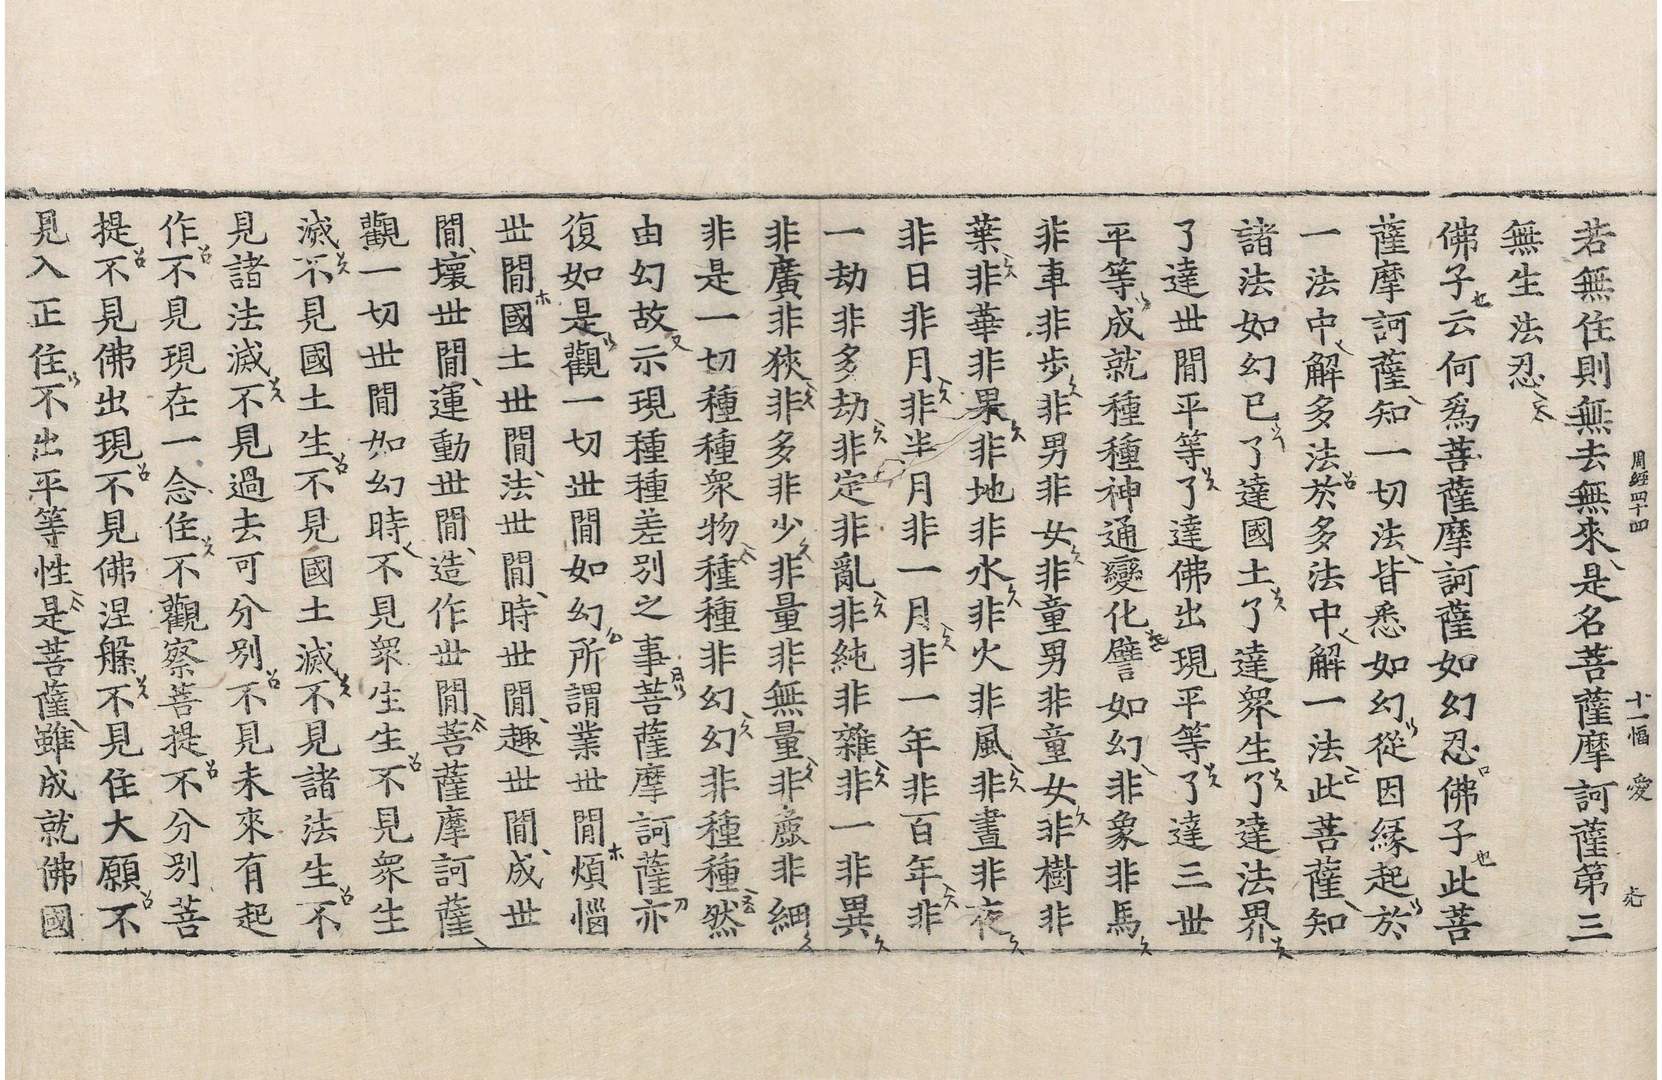 周經四十四　十一幅　愛
若無住則無去無來是名菩薩摩訶薩第三
無生法忍
佛子云何爲菩薩摩訶薩如幻忍佛子此菩
薩摩訶薩知一切法皆悉如幻從因緣起於
一法中解多法於多法中解一法此菩薩知
諸法如幻已了達國土了達衆生了達法界
了達世間平等了達佛出現平等了達三世
平等成就種種神通變化譬如幻非象非馬
非車非步非男非女非童男非童女非樹非
葉非華非果非地非水非火非風非晝非夜
非日非月非半月非一月非一年非百年非
一劫非多劫非定非亂非純非雜非一非異
非廣非狹非多非少非量非無量非麁非細
非是一切種種衆物種種非幻幻非種種然
由幻故示現種種差別之事菩薩摩訶薩亦
復如是觀一切世間如幻所謂業世間煩惱
世間國土世間法世間時世間趣世間成世
間壞世間運動世間造作世間菩薩摩訶薩
觀一切世間如幻時不見衆生生不見衆生
滅不見國土生不見國土滅不見諸法生不
見諸法滅不見過去可分別不見未來有起
作不見現在一念住不觀察菩提不分別菩
提不見佛出現不見佛涅槃不見住大願不
見入正住不出平等性是菩薩雖成就佛國